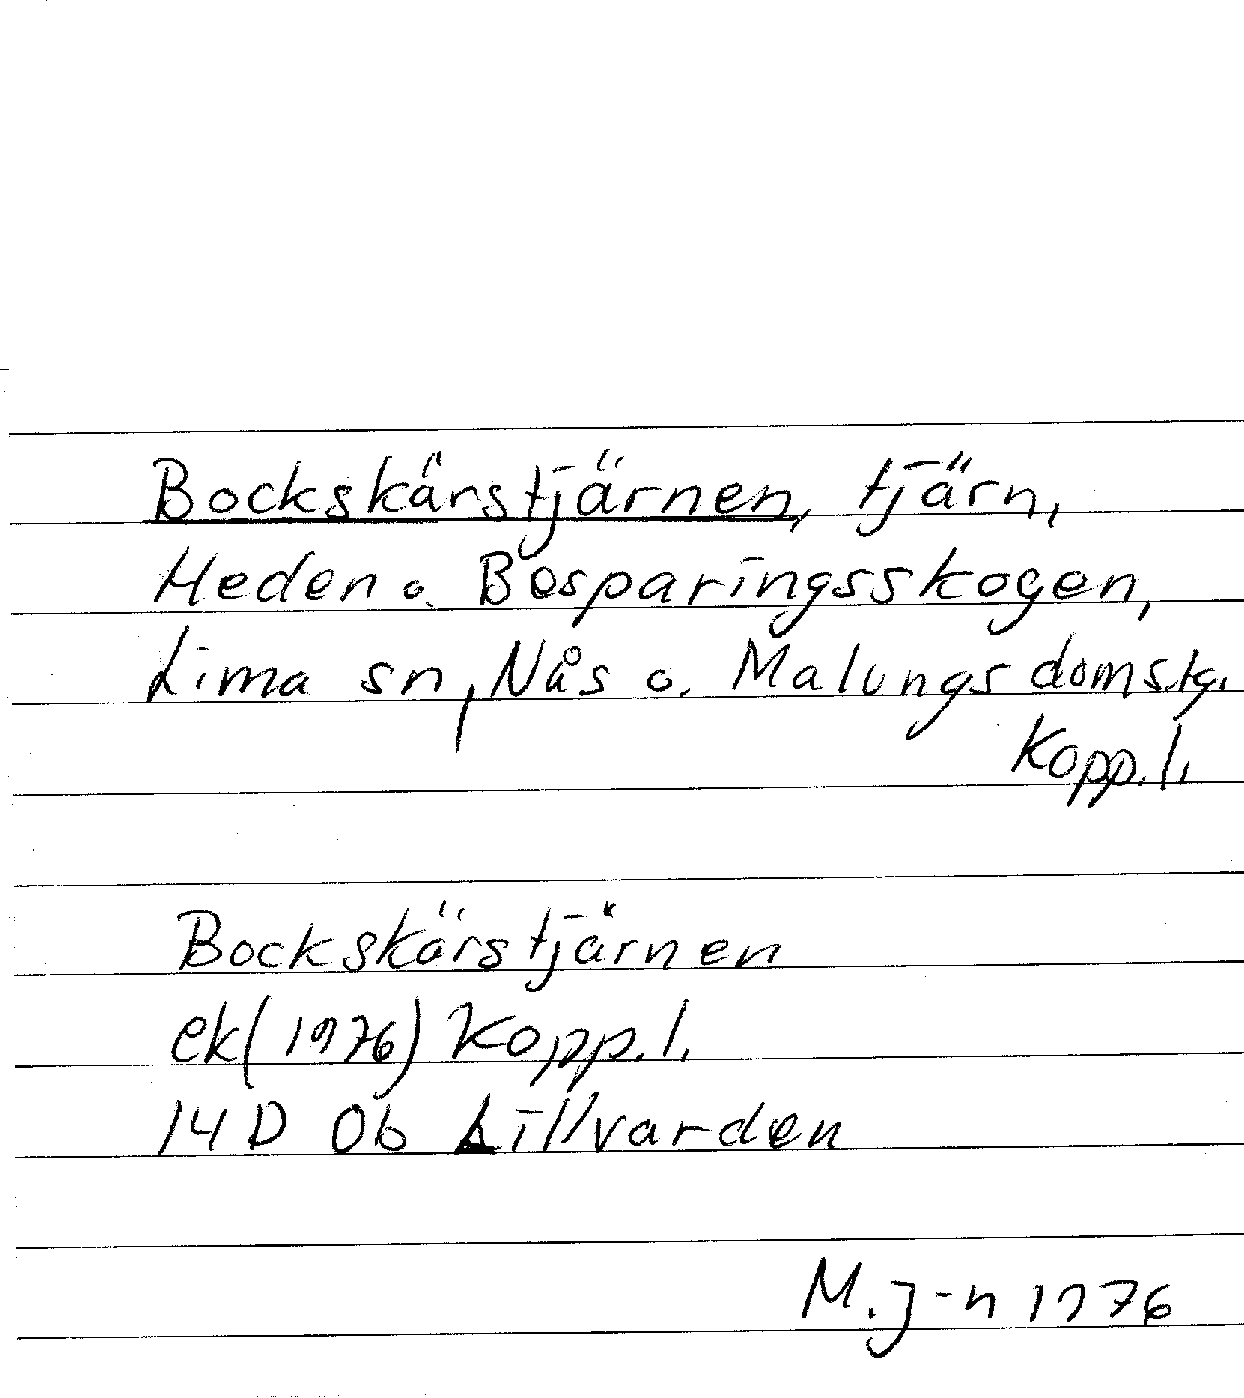 Bockskärstjärnen, tjärn,
Heden o. Besparingsskogen,
Lima sn, Nås o. Malungs domstg.
Kopp.l.
Bockskärstjärnen
ek(1976) Kopp.l.
14D 0b Lillvarden
M. J-n 1976